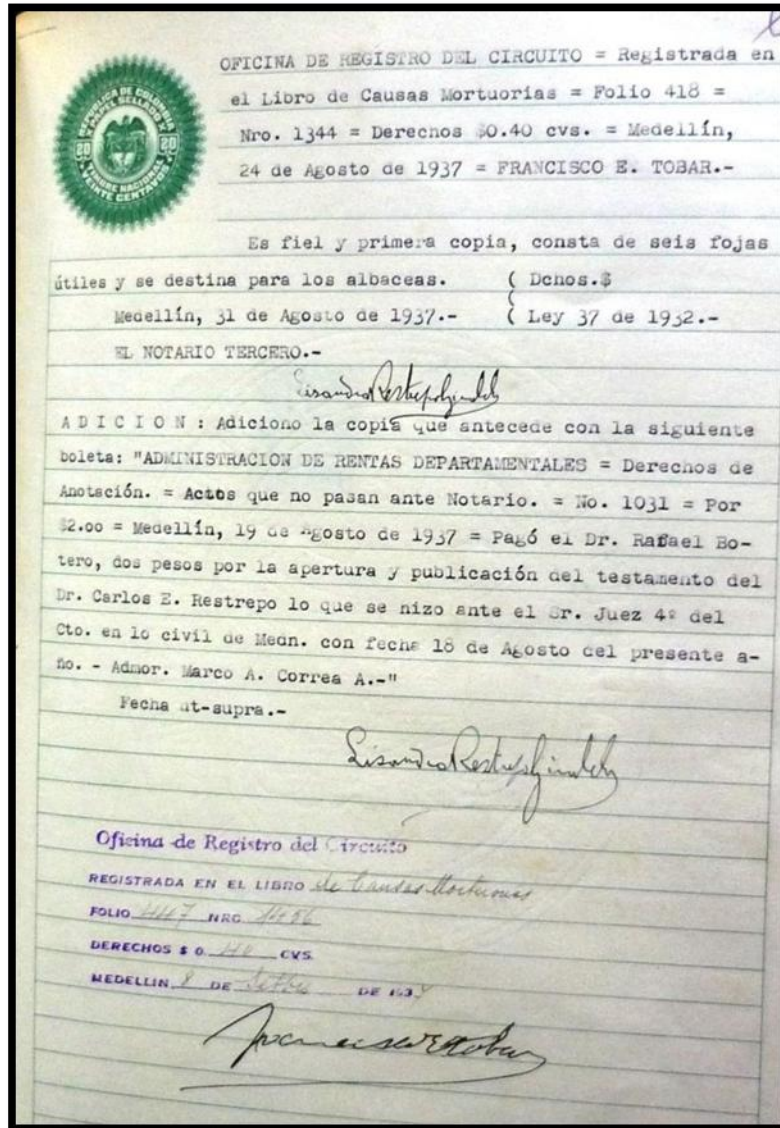 REPUBLICA DE COLOMBIA
PAPEL SELLADO
20 20
TIMBRE NACIONAL
VEINTE CENTAVOS
OFICINA DE REGISTRO DEL CIRCUITO = Registrada en
el Libro de Causas Mortuorias = Folio 418 =
Nro. 1344 = Derechos $0.40 cvs. = Medellín,
24 de Agosto de 1937 = FRANCISCO E. TOBAR.-
Es fiel y primera copia, consta de seis fojas
útiles y se destina para los albaceas. ( Dchos.$
Medellín, 31 de Agosto de 1937.- ( Ley 37 de 1932.-
EL NOTARIO TERCERO.-
Lisandro Restrepo Giraldo
A D I C I O N : Adiciono la copia que antecede con la siguiente
boleta: "ADMINISTRACION DE RENTAS DEPARTAMENTALES = Derechos de
Anotación. = Actos que no pasan ante Notario. = No. 1031 = Por
$2.00 = Medellín, 19 de Agosto de 1937 = Pagó el Dr. Rafael Bo-
tero, dos pesos por la apertura y publicación del testamento del
Dr. Carlos E. Restrepo lo que se hizo ante el Sr. Juez 4º del
Cto. en lo civil de Medn. con fecha 18 de Agosto del presente a-
ño. - Admor. Marco A. Correa A.-"
Fecha ut-supra.-
Lisandro Restrepo Giraldo
Oficina de Registro del Circuito
REGISTRADA EN EL LIBRO de Causas Mortuorias
FOLIO 447 NRO.
DERECHOS $ 0.40 CVS.
MEDELLIN 8 DE Setbre DE 1937
Francisco E Tobar